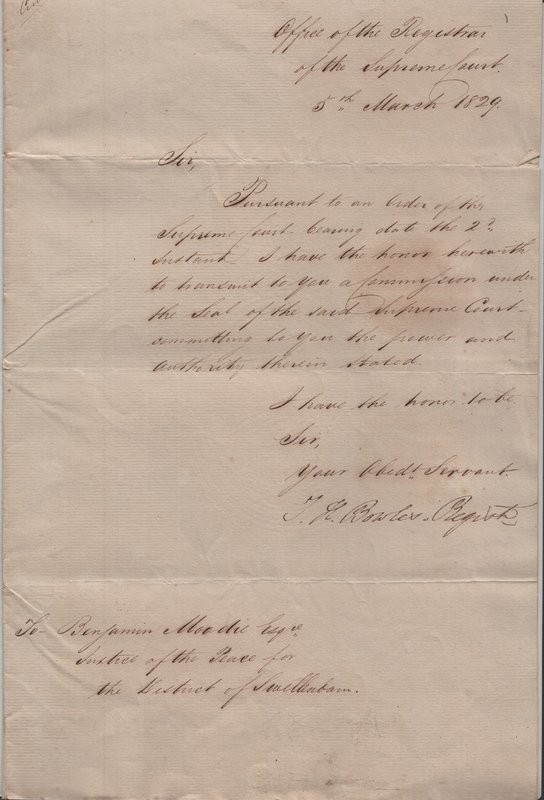 Office of the Registrar
of the Supreme Court.
5th March 1829.
Sir,
Pursuant to an Order of the
Supreme Court bearing date the 2d
Instant I have the honor herewith
to transmit to you a Commission under
the Seal of the said Supreme Court
committing to you the power and
authority therein stated.
I have the honor to be
Sir,
Your Obedt. Servant.
T. H. Bowles. Registr
To Benjamin Moodie Esqre.
Justice of the Peace for
the District of Swellendam.